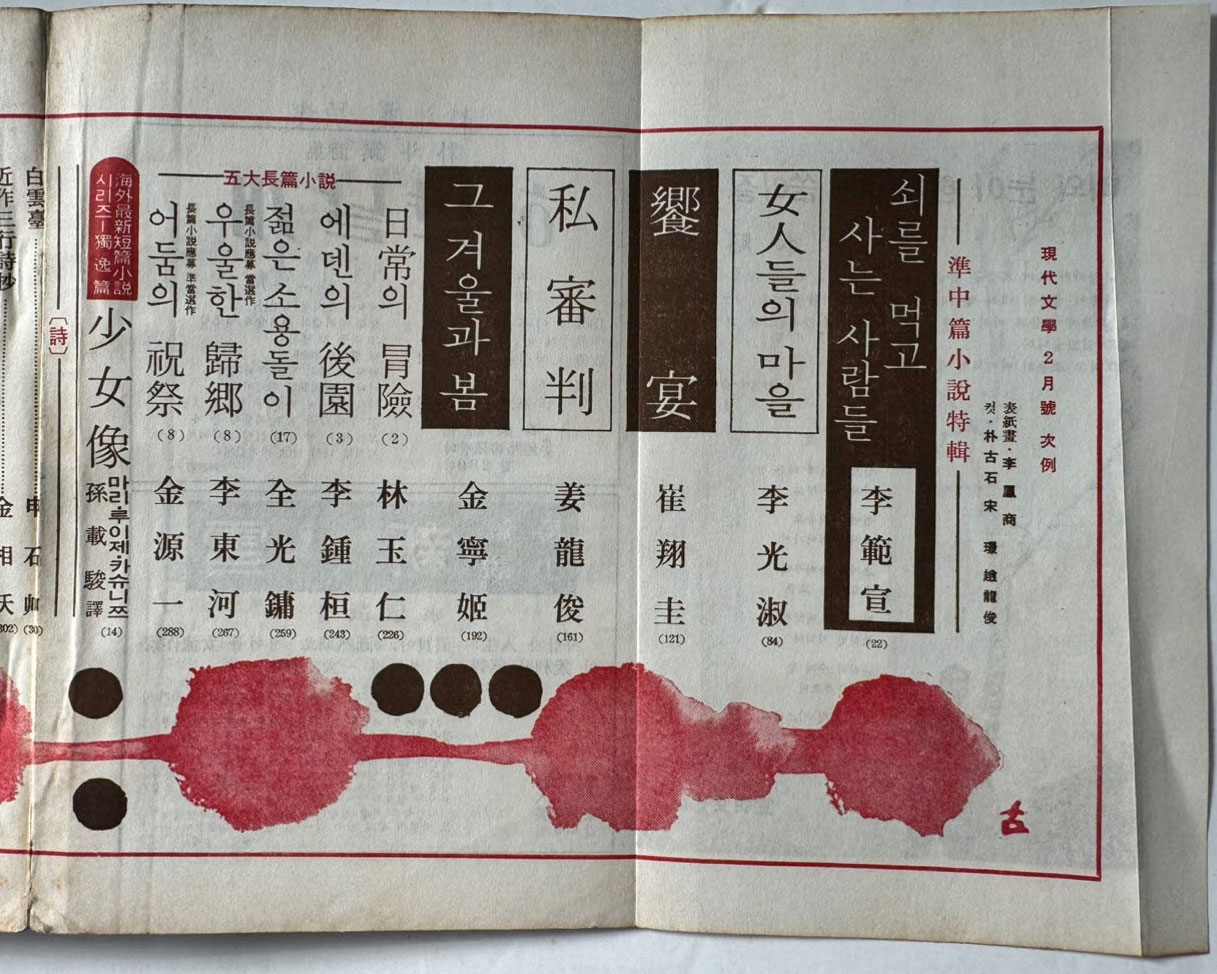 現代文學 2月號 次例
表紙畫·李鳳商
컷·朴古石 宋 趙龍俊
準中篇小說特輯
쇠를 먹고
사는 사람들
李範宣
(22)
女人들의 마을
李光淑
(84)
饗宴
崔翔圭
(121)
私審判
姜龍俊
(161)
그 겨울과 봄
金寧姬
(192)
五大長篇小說
日常의 冒險
(2)
林玉仁
(226)
에덴의 後園
(3)
李鍾桓
(243)
젊은 소용돌이
(17)
全光鏞
(259)
長篇小說應募 當選作
우울한 歸鄉
(8)
李東河
(267)
長篇小說應募 準當選作
어둠의 祝祭
(8)
金源一
(288)
海外最新短篇小說
시리즈—獨逸篇
少女像
마리·루이제·카슈니쯔
孫載駿譯
(14)
〔詩〕
白雲臺
申石艸
(30)
近作三行詩抄
金相沃
(302)
古